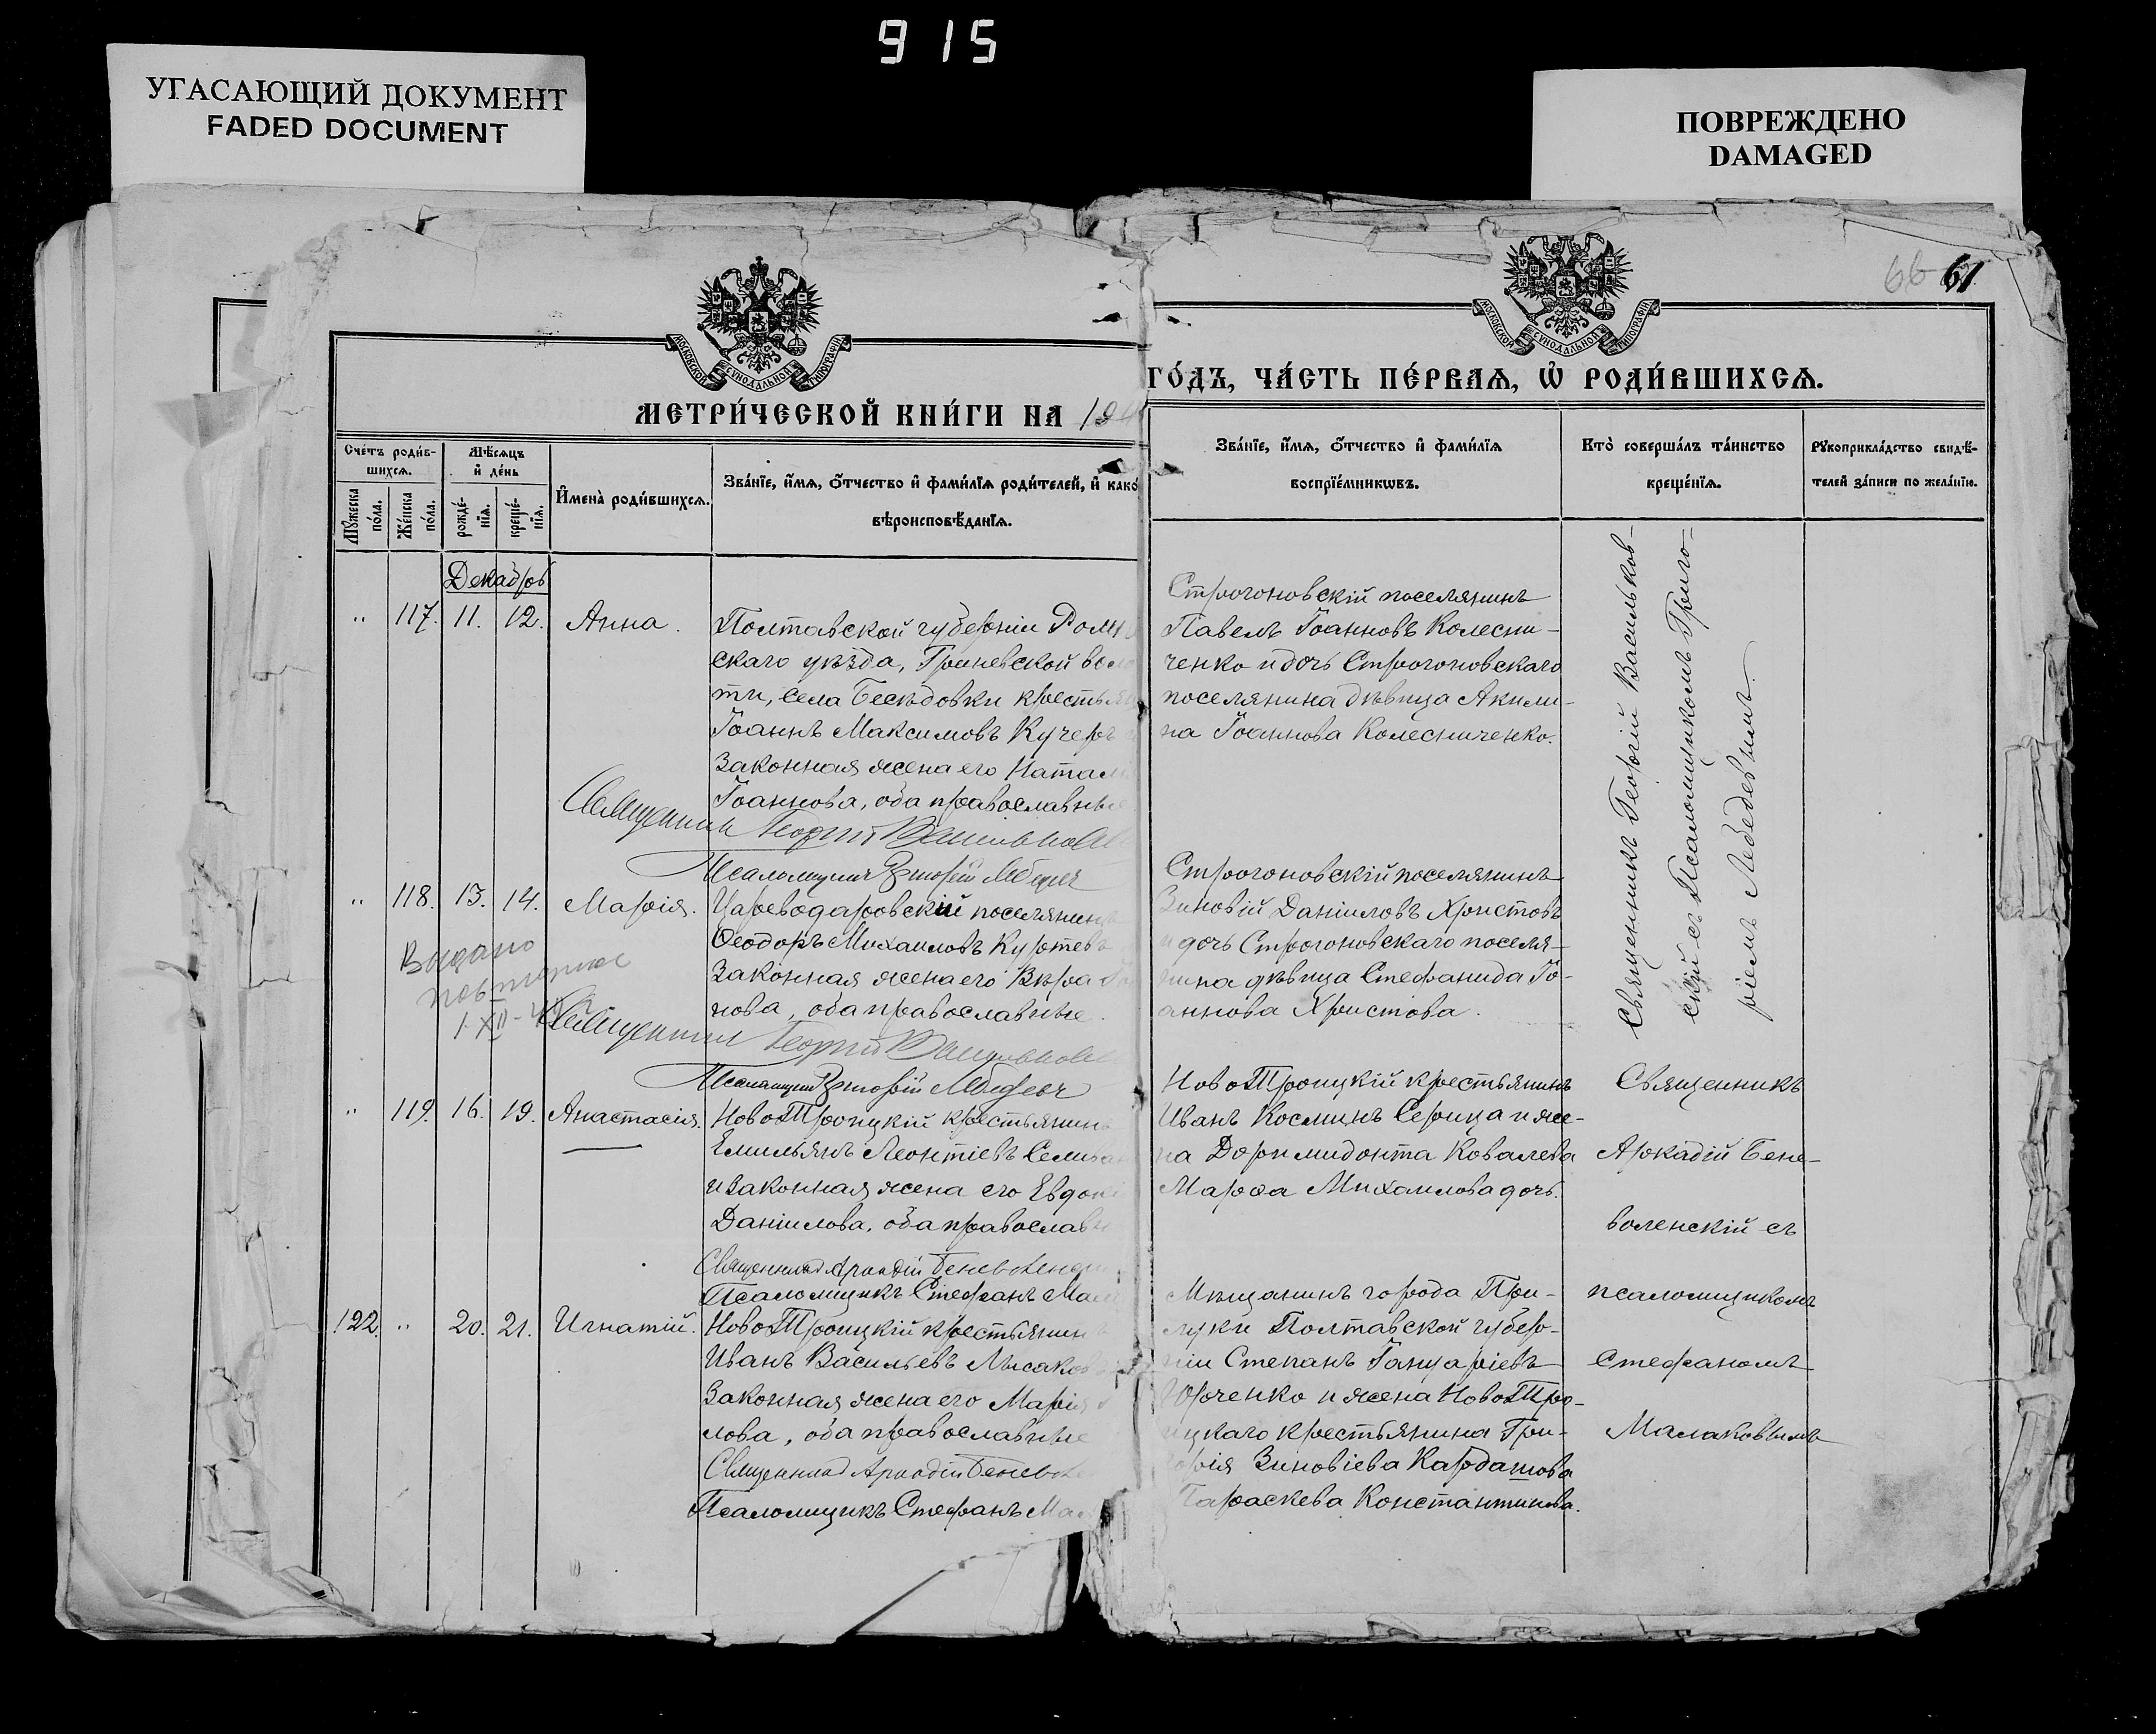 915
УГАСАЮЩИЙ ДОКУМЕНТ
FADED DOCUMENT
ПОВРЕЖДЕНО
DAMAGED
66 61
МОСКОВСКОЙ СѴНОДАЛЬНОЙ ТИПОГРАФІИ
МОСКОВСКОЙ СѴНОДАЛЬНОЙ ТИПОГРАФІИ
МЕТРИ́ЧЕСКОЙ КНИ́ГИ НА 19
ГО́ДЪ, ЧА́СТЬ ПЕ́РВАЯ, Ѡ РОДИ́ВШИХСЯ.
Сче́тъ роди́в-
шихся.
Мꙋ́жеска
по́ла.
Же́нска
по́ла.
Мѣ́сяцъ
и де́нь
рожде́-
нїя.
креще́-
нїя.
Имена̀ роди́вшихся.
Зва́нїе, и́мя, о́тчество и фами́лїя роди́телей, и како
вѣроисповѣ́данїя.
Зва́нїе, и́мя, о́тчество и фами́лїя
воспрїе́мникѡвъ.
Кто̀ соверша́лъ та́инство
креще́нїя.
Рꙋкоприкла́дство свидѣ́-
телей за́писи по жела́нїю.
Декабрь
" 117. 11. 12. Анна.
Полтавской губерніи Ромн
скаго уѣзда, Гриневской воло
ти, села Бесѣдовки крестьян
Іоаннъ Максимовъ Кучеръ
законная жена его Натал
Іоаннова, оба православные
Священникъ Георгій Васильков
Псаломщикъ Григорій Лебедев
Строгоновскій поселянинъ
Павелъ Іоанновъ Колесни-
ченко и дочь Строгоновскаго
поселянина дѣвица Акили-
на Іоаннова Колесниченко.
Священникъ Георгій Васильков-
скій съ Псаломщикомъ Григо-
ріемъ Лебедевымъ.
" 118. 13. 14. Марія.
Выдано
повторное
1-XII-
Цареводаровскій поселянинъ
Ѳеодоръ Михаиловъ Куртевъ
законная жена его Вѣра
нова, оба православные.
Священникъ Георгій Васильков
Псаломщикъ Григорій Лебедев
Строгоновскій поселянинъ
Зиновій Даніиловъ Христовъ
и дочь Строгоновскаго поселя-
нина дѣвица Стефанида Іо-
аннова Христова.
" 119. 16. 19. Анастасія.
НовоТроицкій крестьянинъ
Емильянъ Леонтіевъ Селива
и законная жена его Евдокі
Даніилова, оба православн
Священникъ Аркадій Беневоленс
Псаломщикъ Стефанъ Мал
НовоТроицкій крестьянинъ
Иванъ Косминъ Серица и же-
на Доримидонта Ковалева
Марѳа Михаилова дочь.
Священникъ
Аркадій Бене-
воленскій съ
псаломщикомъ
Стефаномъ
Малаковымъ
122. " 20. 21. Игнатій.
НовоТроицкій крестьянинъ
Иванъ Васильевъ Лысаков
законная жена его Марія
лова, оба православные
Священникъ Аркадій Беневоле
Псаломщикъ Стефанъ Мал
Мѣщанинъ города При-
луки Полтавской губер-
ніи Степанъ Ганцаріевъ
Юрченко и жена НовоТро-
ицкаго крестьянина Гри-
горія Зиновіева Кардашова
Параскева Константинова.